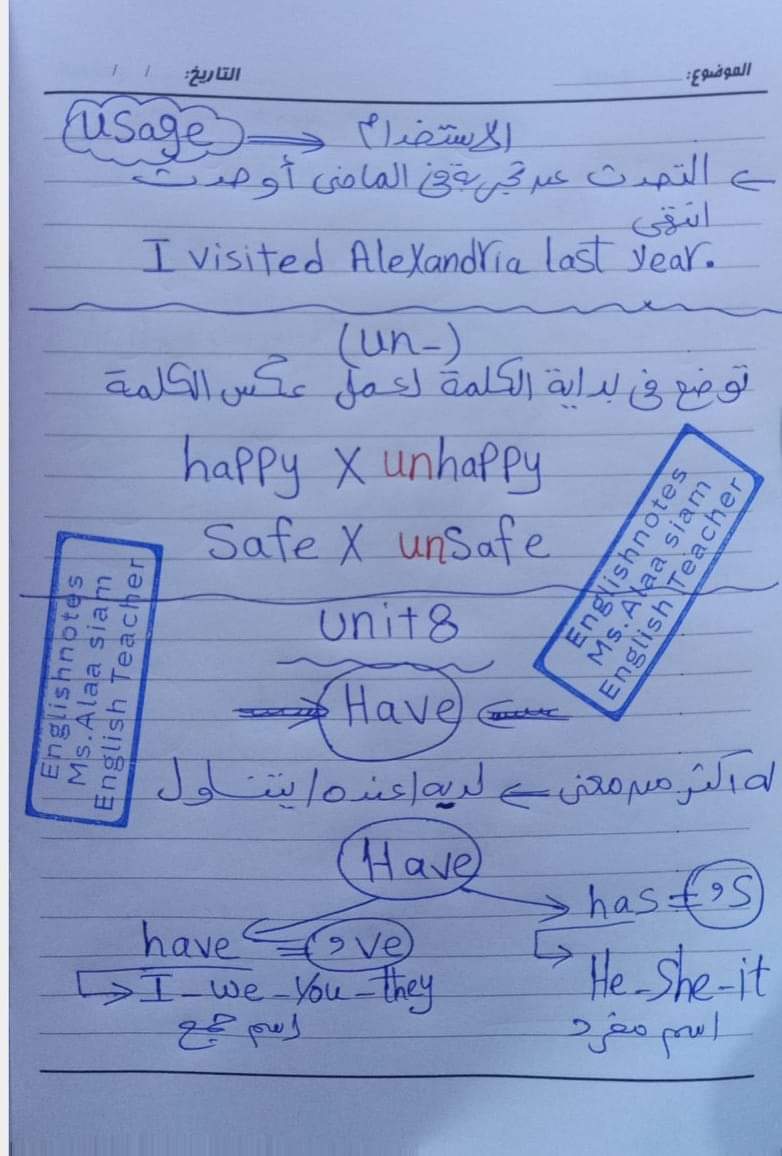 الموضوع: التاريخ: / /
Usage → الاستخدام
← التحدث عن تجربة في الماضى أو حدث
انتهى
I visited Alexandria last year.
(un-)
توضع في بداية الكلمة لعمل عكس الكلمة
happy X unhappy
Safe X unSafe
Englishnotes
Ms.Alaa siam
English Teacher
Englishnotes
Ms.Alaa siam
English Teacher
Unit 8
Have
له أكثر من معنى ← لديه/عنده/يتناول
Have
has = ,s
have = ,ve
He-She-it
I-we-You-they
اسم مفرد
اسم جمع